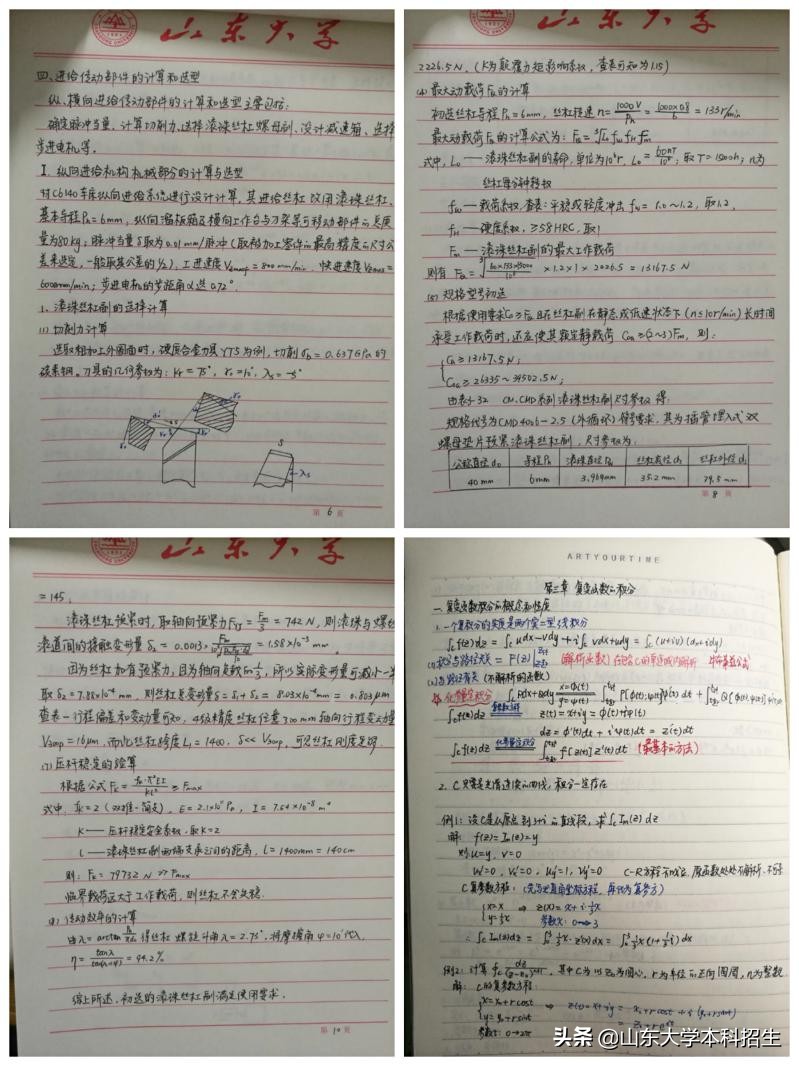 山东大学
四、进给传动部件的计算和选型
纵、横向进给传动部件的计算和选型主要包括:
确定脉冲当量、计算切削力、选择滚珠丝杠螺母副、设计减速箱、选择
步进电机等。
I. 纵向进给机构机械部分的计算与选型
对C6140车床纵向进给系统进行设计计算,其进给丝杠改用滚珠丝杠,
基本导程Ph=6mm,纵向溜板箱及横向工作台与刀架等可移动部件的总质
量为80kg;脉冲当量δ取为0.01mm/脉冲(取所加工零件的最高精度的尺寸公
差来选定,一般取其公差的1/2),工进速度=800mm/min,快进速度
6000mm/min;步进电机的步距角α选0.72°.
1. 滚珠丝杠副的选择计算
(1) 切削力计算
选取粗加工外圆面时,硬质合金刀具YT5为例,切削σb=0.637GPa的
碳素钢。刀具的几何参数为:Kr=75°, γ=10°, λs=-5°
S
λs
第 6 页
山东大学
2226.5N.(K为颠覆力矩影响系数,查表可知为1.15)
最大动载荷FQ的计算
初选丝杠导程Ph=6mm,丝杠转速n=1000V/Ph=1000×0.8/6=133r/min
最大动载荷FQ的计算公式为:FQ=³√L0 fw fH Fm
式中,L0——滚珠丝杠副的寿命,单位为10⁶r,L0=60nT/10⁶;取T=15000h;n为
丝杠每分钟转数
fw——载荷系数,查表:平稳或轻度冲击fw=1.0~1.2,取1.2,
fH——硬度系数,≥58HRC,取1
Fm——滚珠丝杠副的最大工作载荷
则有 FQ=³√60×133×15000/10⁶ ×1.2×1×2026.5=13167.5N
(5) 规格型号初选
根据使用要求Ca≥FQ且在丝杠副在静态或低速状态下(n≤10r/min)长时间
承受工作载荷时,还应使其额定静载荷C0a≥(2~3)Fm,则:
Ca≥13167.5N;
C0a≥26335~39502.5N;
由表3-32 CM、CMD系列滚珠丝杠副尺寸参数得:
规格代号为CMD4006-2.5(外循环)符号要求,其为插管埋入式双
螺母垫片预紧滚珠丝杠副,尺寸参数为:
公称直径d0 导程Ph 滚珠直径Dw 丝杠底径d1 丝杠外径d
40mm 6mm 3.969mm 35.2mm 39.5mm
第 8 页
山东大学
=145.
滚珠丝杠预紧时,取轴向预紧力FYJ=Fm/3=742N,则滚珠与螺纹
滚道间的接触变形量 =1.58×10⁻³mm.
因为丝杠加有预紧力,且为轴向负载的1/3,所以实际变形量可减小一半
取δ2=7.88×10⁻⁴mm,则丝杠总变形量δ=δ1+δ2=8.03×10⁻⁴mm=0.803μm
查表-行程偏差和变动量可知,4级精度丝杠任意300mm轴向行程变动量
V300p=16μm,而此丝杠跨度L1=1400,δ<<V300p,可见丝杠刚度足够.
(7) 压杆稳定的验算
根据公式FK=fkπ²EI/Kl²≥Fmax
式中:fk=2(双推-简支), E=2.1×10¹¹Pa, I=7.54×10⁻⁸m⁴
K——压杆稳定安全系数,取K=2
l——滚珠丝杠副两端支承之间的距离,l=1400mm=140cm
则:FK=79732N>>Fmax
临界载荷远大于工作载荷,则丝杠不会失稳.
(8) 传动效率的计算
由λ=arctan 得丝杠螺纹升角λ=2.73°,将摩擦角φ=10′代入
η=tanλ/tan(λ+φ)=94.2%
综上所述,初选的滚珠丝杠副满足使用要求.
第 10 页
ARTYOURTIME
第三章 复变函数的积分
一. 复变函数积分的概念和性质
1. 一个复积分的实质是两个实二型线积分
∫c f(z)dz=∫c udx-vdy+i∫c vdx+udy=∫c(u+iv)(dx+idy)
(1)积分与路径无关=F(z) (解析函数)
(2)与路径有关(不解析的函数)
dz=φ'(t)dt+iψ'(t)dt=z'(t)dt
∫c f(z)dz ∫ f[z(t)]z'(t)dt (最基本的方法)
2. C只要是光滑连续的曲线,积分一定存在
例1:设C是从原点到3+i的直线段,求∫c Im(z)dz
解:f(z)=Im(z)=y
则:u=y, v=0
C-R方程不成立,原函数处处不解析,不可导
C复参数方程:(先写出直角坐标方程,再代为复参方)
x=x ⇒ z(x)=x+i·⅓x
y=⅓x 参数x:0→3
∴∫c Im(z)dz=∫₀³⅓x·z'(x)dx=∫₀³⅓x(1+⅓i)dx
例2:计算∮c dz/(z-z0)ⁿ⁺¹,其中C为以z0为圆心,r为半径的正向圆周,n为整数
解:C的复参数方程:
x=x0+rcost ⇒ z(t)=x+iy=x0+rcost+i(y0+rsint)
y=y0+rsint
参数t:0→2π
头条 @山东大学本科招生